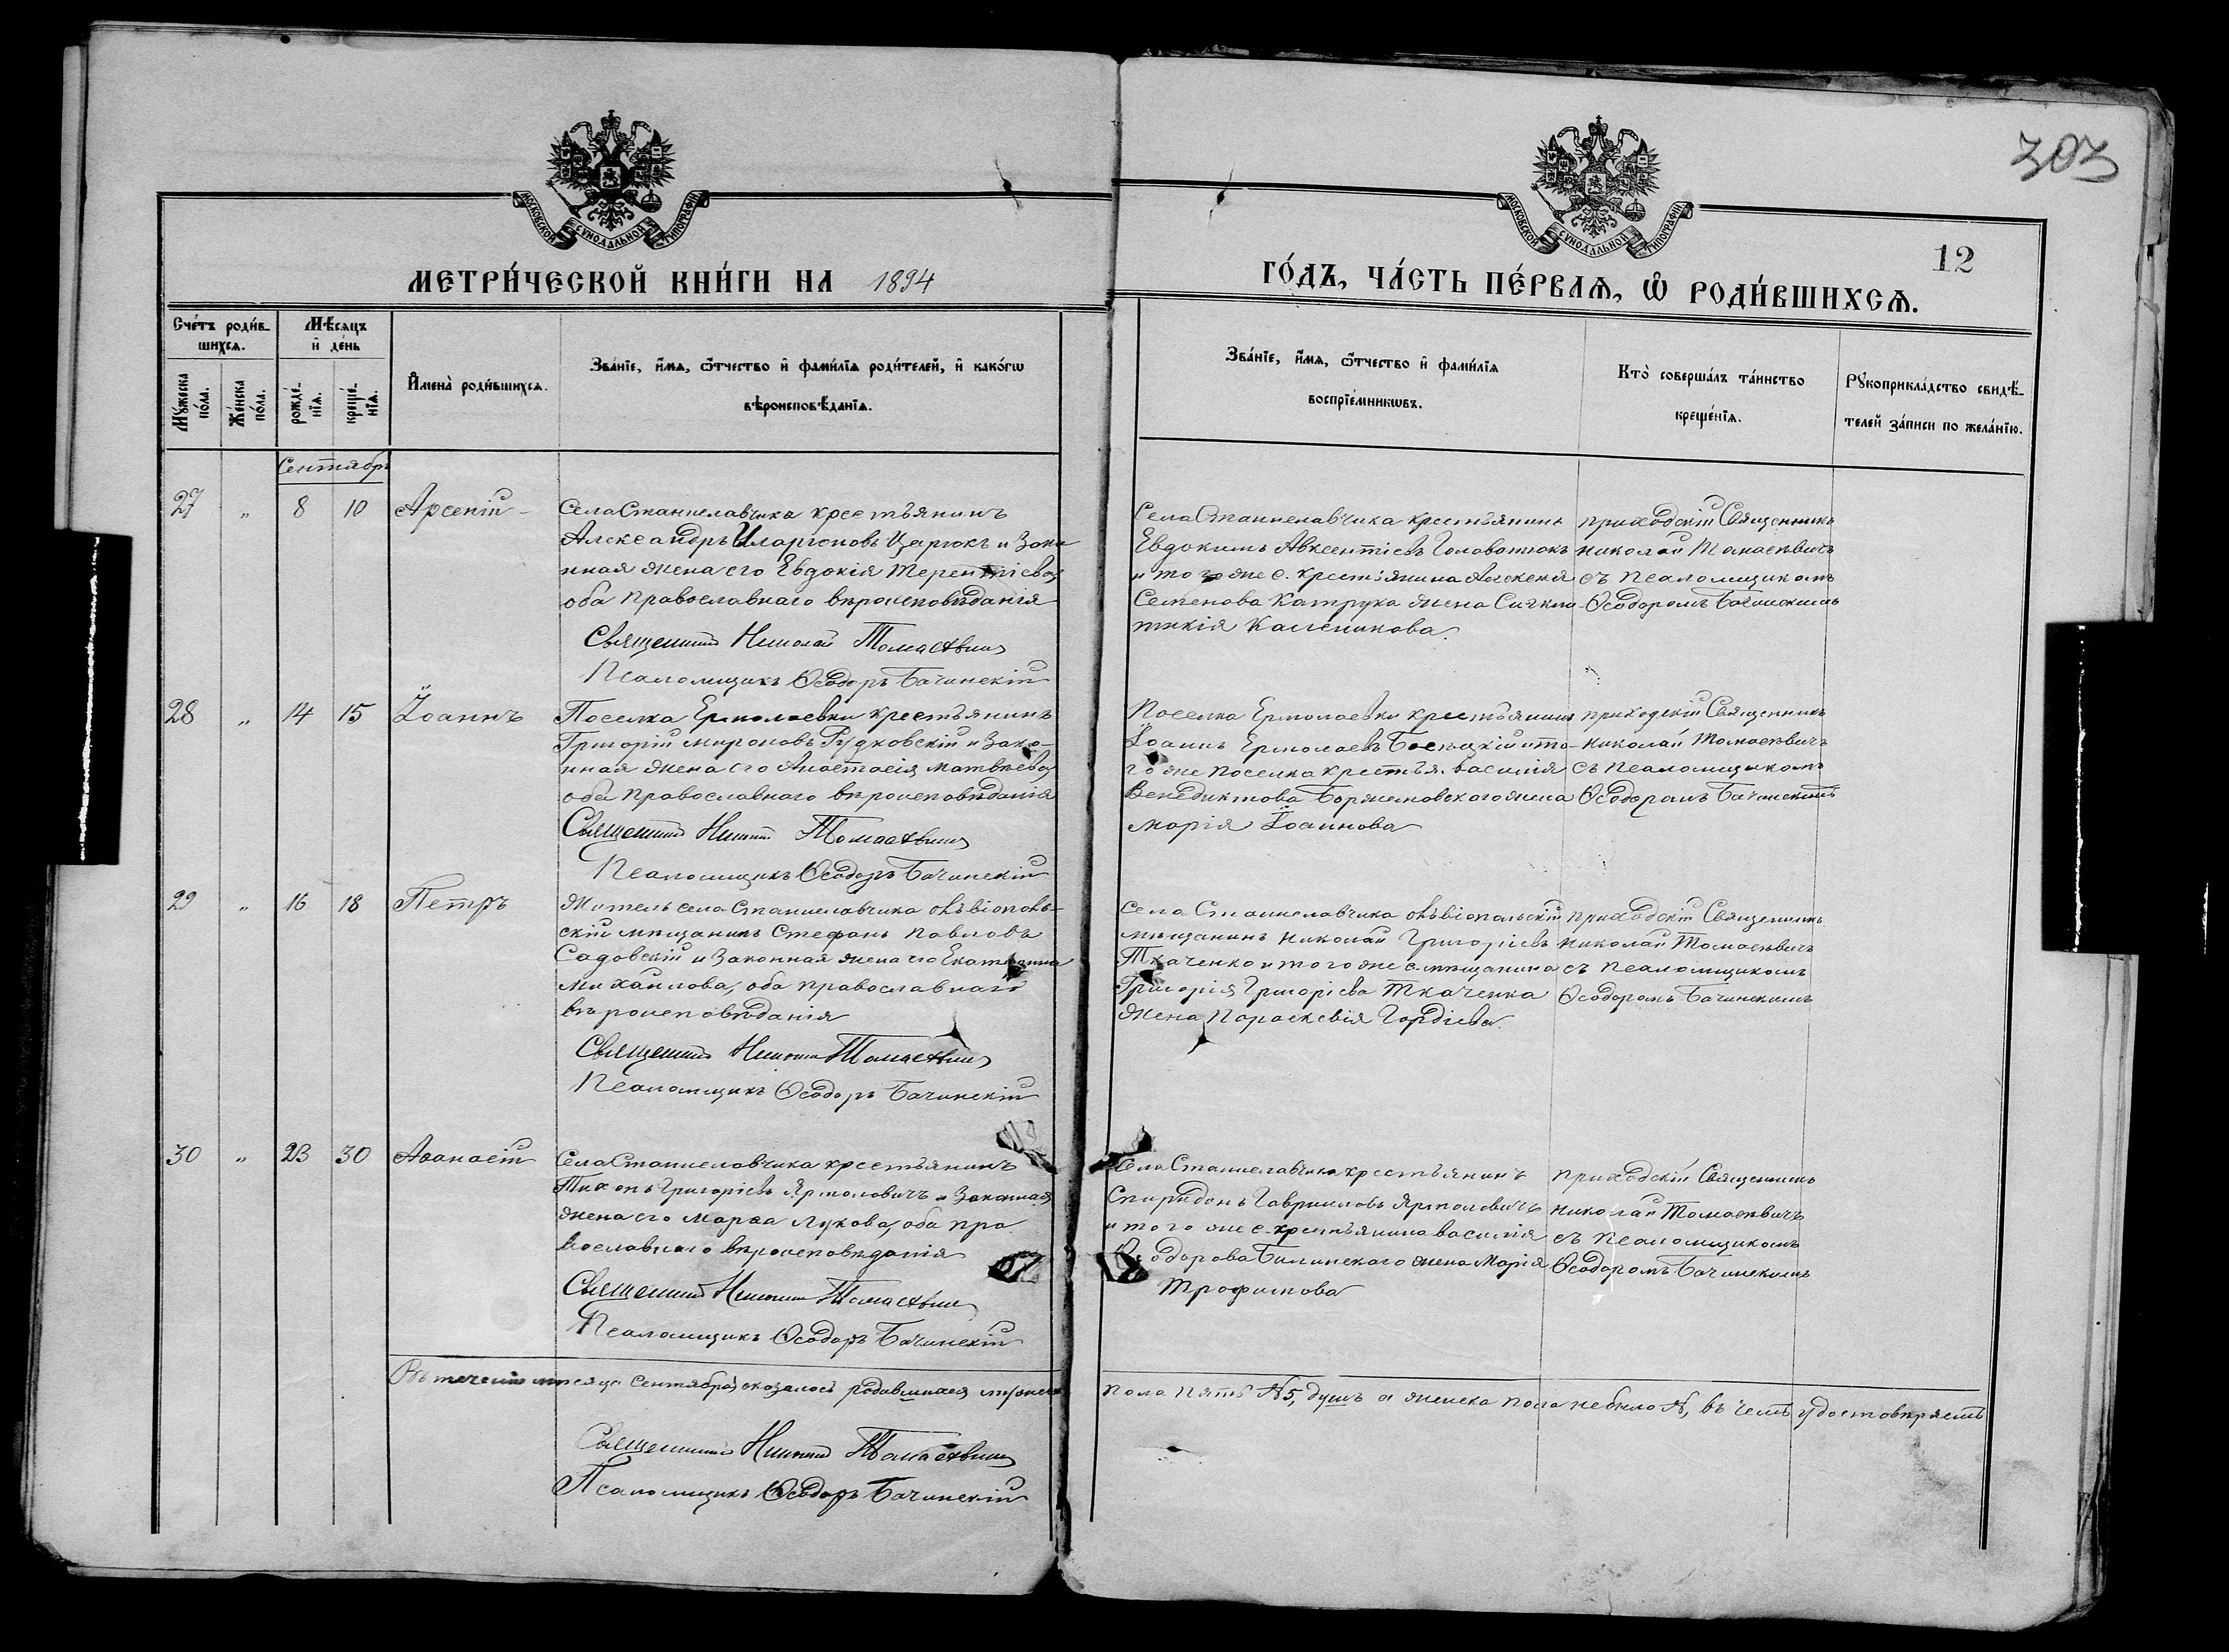 303
МОСКОВСКОЙ СѴНОДАЛЬНОЙ ТИПОГРАФІИ
МОСКОВСКОЙ СѴНОДАЛЬНОЙ ТИПОГРАФІИ
12
МЕТРИ́ЧЕСКОЙ КНИ́ГИ НА 1894
ГО́ДЪ, ЧА́СТЬ ПЕ́РВАѦ, Ѡ҆ РОДИ́ВШИХСѦ.
Сче́тъ роди́в-
шихсѧ.
Мѣ́сѧцъ
и҆ де́нь
Мꙋ́жеска по́ла.
Же́нска по́ла.
рожде́-
нїѧ.
креще́-
нїѧ.
И҆мена̀ роди́вшихсѧ.
Зва́нїе, и҆́мѧ, ѻ҆́тчество и҆ фами́лїѧ роди́телей, и҆ како́гѡ
вѣроисповѣ́данїѧ.
Зва́нїе, и҆́мѧ, ѻ҆́тчество и҆ фами́лїѧ
воспрїе́мникѡвъ.
Кто̀ соверша́лъ та́инство
креще́нїѧ.
Рꙋкоприкла́дство свидѣ́-
телей за́писи по жела́нїю.
Сентябрь
27 „ 8 10 Арсеній
Села Станиславчика крестьянинъ
Александръ Иларіоновъ Царюкъ и Зако
нная жена его Евдокія Терентіева,
оба православнаго вѣроисповѣданія
Священникъ Николай Томасевичъ
Псаломщикъ Ѳеодоръ Бачинскій
Села Станиславчика крестьянинъ
Евдокимъ Авксентіевъ Головатюкъ
и того же с. крестьянина Алексея
Семенова Катрука жена Синкли
тикія Каленикова.
приходскій Священникъ
Николай Томасевичъ
съ псаломщикомъ
Ѳеодоромъ Бачинскимъ
28 „ 14 15 Іоаннъ
Поселка Ермолаевки крестьянинъ
Григорій Мироновъ Рудковскій и Зако-
нная жена его Анастасія Матвѣева,
оба православнаго вѣроисповѣданія
Священникъ Николай Томасевичъ
Псаломщикъ Ѳеодоръ Бачинскій
Поселка Ермолаевки крестьянинъ
Іоаннъ Ермолаевъ и то-
го же поселка крестья. Василія
Венедиктова Боржемовского жена
Марія Іоаннова
приходскій Священникъ
Николай Томасевичъ
съ псаломщикомъ
Ѳеодоромъ Бачинскимъ
29 „ 16 18 Петръ
Житель села Станиславчика
скій мѣщанинъ Стефанъ Павловъ
Садовскій и Законная жена его Екатерина
Михаилова, оба православнаго
вѣроисповѣданія
Священникъ Николай Томасевичъ
Псаломщикъ Ѳеодоръ Бачинскій
Села Станиславчика овѣіопольскій
мѣщанинъ Николай Григоріевъ
Ткаченко и того же с. мѣщанина
Григорія Григоріева Ткаченка
жена Параскевія Гордіева.
приходскій Священникъ
Николай Томасевичъ
съ псаломщикомъ
Ѳеодоромъ Бачинскимъ
30 „ 23 30 Аѳанасій
Села Станиславчика крестьянинъ
Тихонъ Григоріевъ Ярмоловичъ и Законная
жена его Марѳа Лукова, оба пра
вославнаго вѣроисповѣданія
Священникъ Николай Томасевичъ
Псаломщикъ Ѳеодоръ Бачинскій
Села Станиславчика крестьянинъ
Спиридонъ Гавриловъ Ярмоловичъ
и того же с. крестьянина Василія
Ѳеодорова Билинскаго жена Марія
Трофимова
приходскій Священникъ
Николай Томасевичъ
съ псаломщикомъ
Ѳеодоромъ Бачинскимъ
Въ теченіи мѣсяца Сентября оказалось родившихся мужеска
пола пять №5, душъ а женска пола небыло №, въ чемъ удостовѣряемъ
Священникъ Николай Томасевичъ
Псаломщикъ Ѳеодоръ Бачинскій